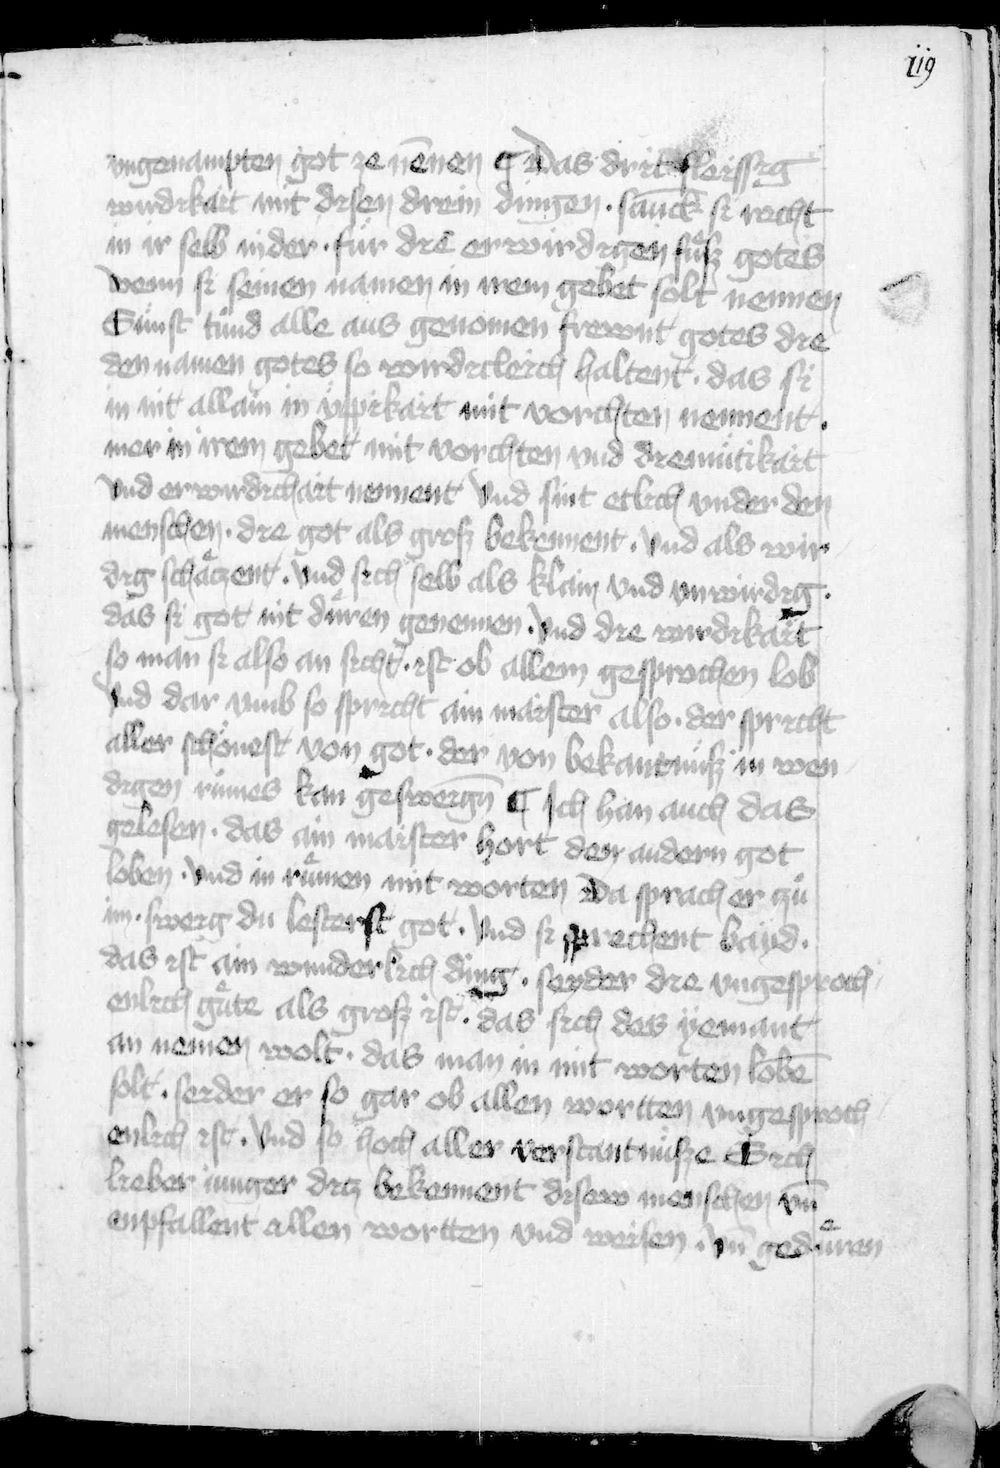 119
ungenampten got ze nēnen ¶ Das drit fleissig
wirdikait mit disen drein dingen . sauck si recht
in ir selb nider . für die erwirdigen fuͤsz gotes
wenn si seinen namen in irem gebet solt nennen
Suͤnst tuͤnd alle aus genomen frewnt gotes die
den namen gotes so wirdicleich haltent . das si
in nit allain in üppikait mit vorchten nennent .
mer in irem gebet mit vorchten vnd diemütikait
vnd erwirdichait nennent Vnd sint etlich vnder den
menschen . die got als grosz bekennent . Vnd als wir
dig schaͤtzent . Vnd sich selb als klain vnd vnwirdig .
das si got nit duͤren genennen . Vnd die wirdikait
so man si also an sicht . ist ob allem gesprochen lob
Vnd dar vmb so spricht ain maister also . der spricht
aller schönest von got . der von bekantnüsz in wen
digen rümes kan gesweign̄ ¶ Ich han auch das
gelesen . das ain maister hort den andern got
loben . Vnd in ruͤmen mit worten Da sprach er zuͦ
im . sweig du lesterst got . Vnd si sprechent bayd .
das ist ain wunderlich ding . seyder die vngesproch
enlich guͤte als grosz ist . das sich des yemant
an nemen wolt . das man in mit worten lobē
solt . seider er so gar ob allen wortten vngesproch
enlich ist . Vnd so hoch aller verstantnüsze Sich
lieber iunger ditz bekennent disew menschen vn̄
enpfallent allen wortten vnd weisen . vn̄ geduͤren